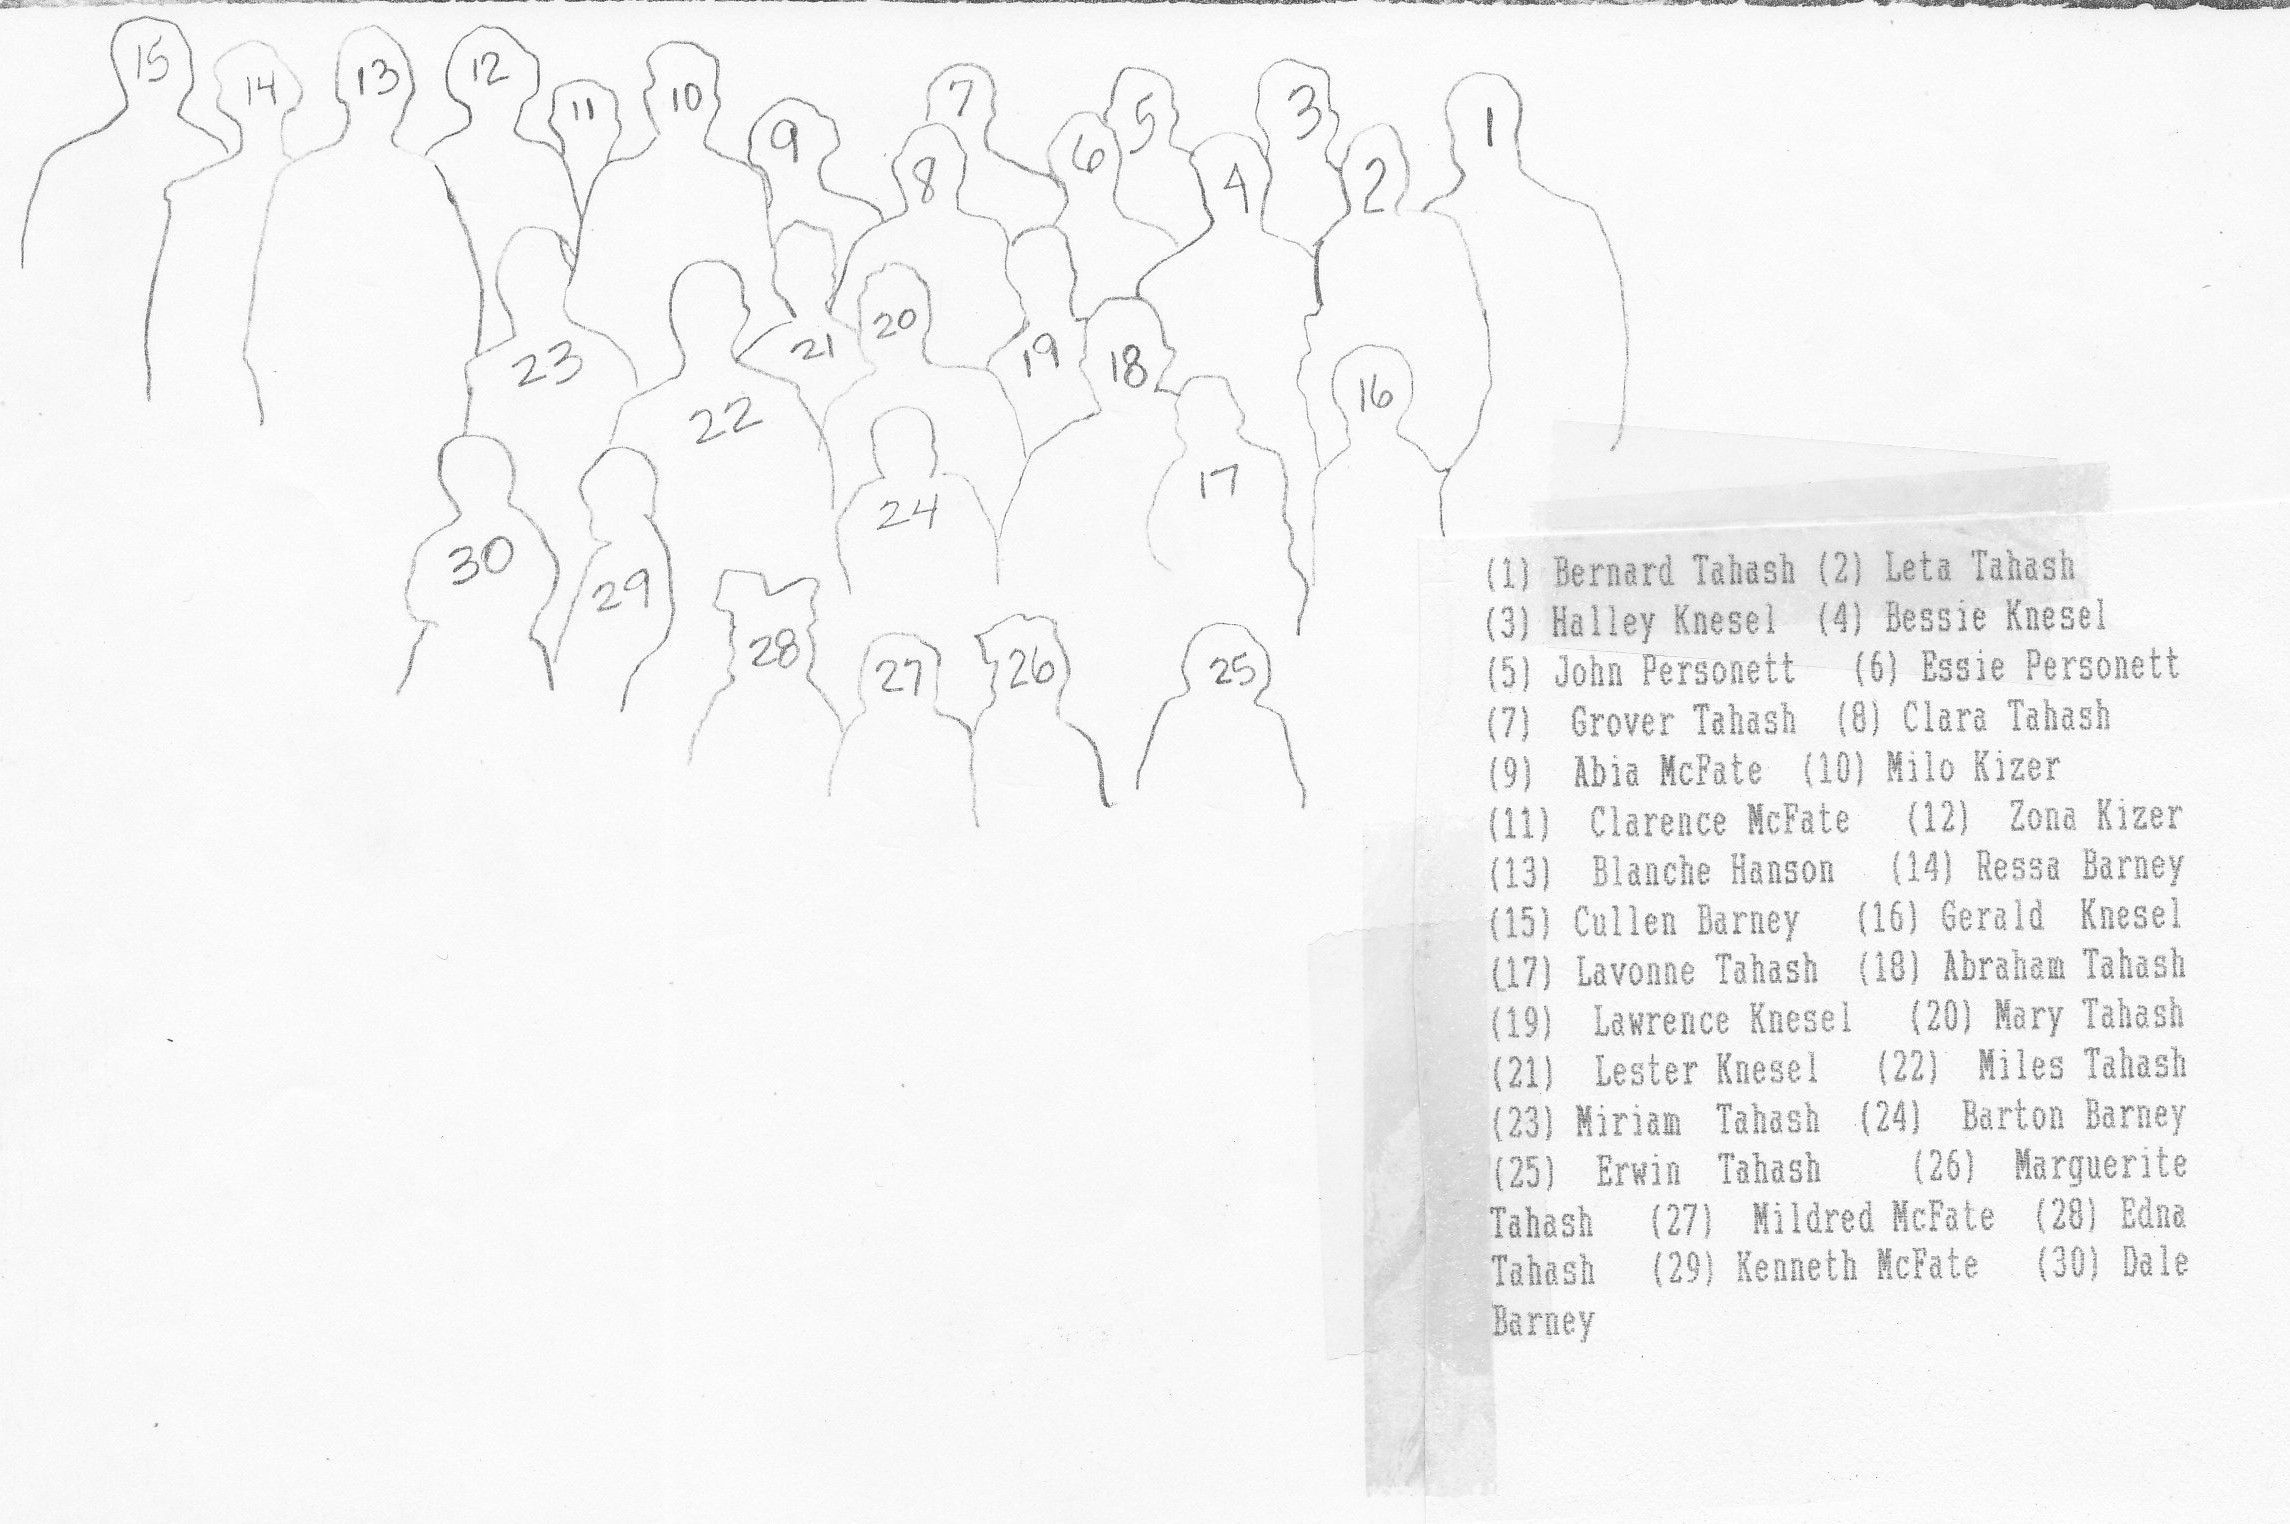 15 14 13 12 11 10 9 7 8 6 5 4 3 2 1
23 22 21 20 19 18 17 16
30 29 24
28 27 26 25
(1) Bernard Tahash (2) Leta Tahash
(3) Halley Knesel (4) Bessie Knesel
(5) John Personett (6) Essie Personett
(7) Grover Tahash (8) Clara Tahash
(9) Abia McFate (10) Milo Kizer
(11) Clarence McFate (12) Zona Kizer
(13) Blanche Hanson (14) Ressa Barney
(15) Cullen Barney (16) Gerald Knesel
(17) Lavonne Tahash (18) Abraham Tahash
(19) Lawrence Knesel (20) Mary Tahash
(21) Lester Knesel (22) Miles Tahash
(23) Miriam Tahash (24) Barton Barney
(25) Erwin Tahash (26) Marguerite
Tahash (27) Mildred McFate (28) Edna
Tahash (29) Kenneth McFate (30) Dale
Barney